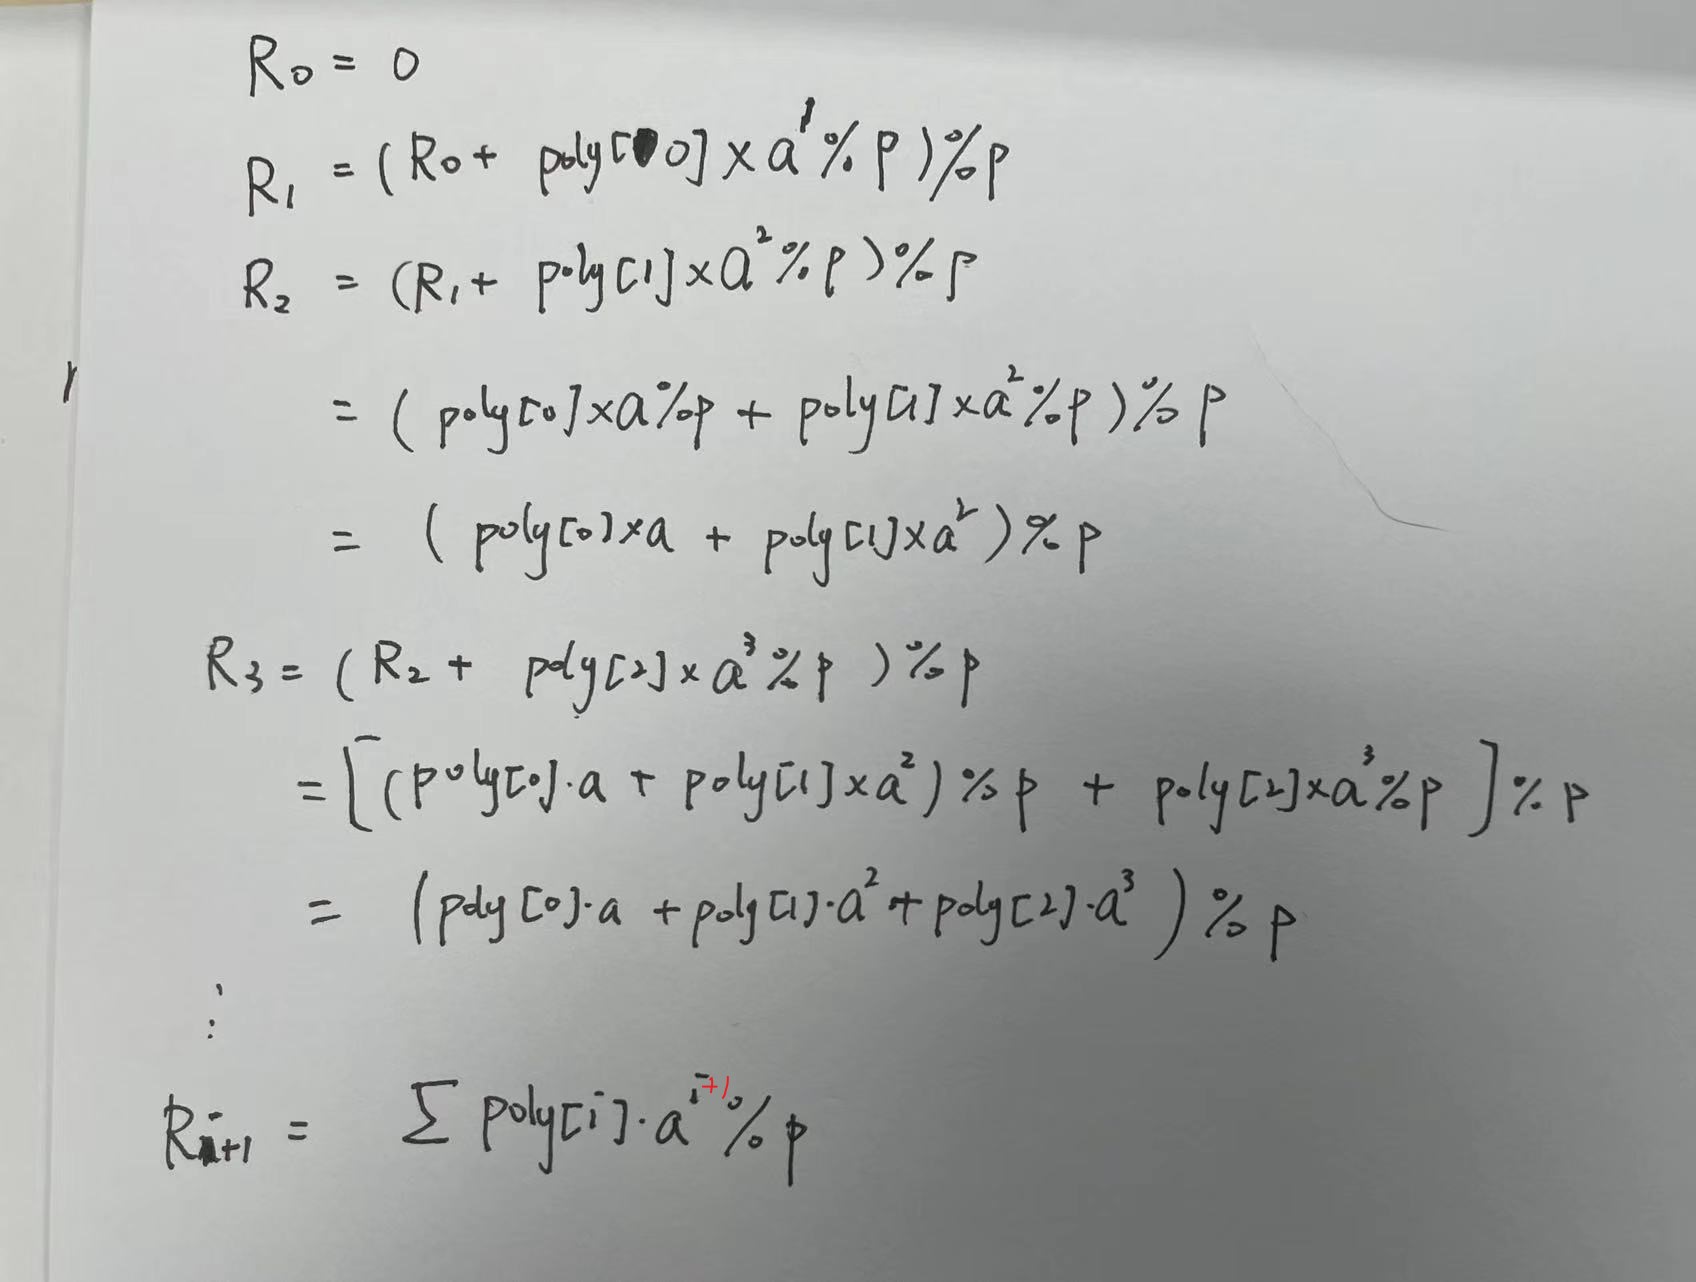 R₀ = 0
R₁ = (R₀ + poly[0] × a¹ % p) % p
R₂ = (R₁ + poly[1] × a² % p) % p
= (poly[0] × a % p + poly[1] × a² % p) % p
= (poly[0] × a + poly[1] × a²) % p
R₃ = (R₂ + poly[2] × a³ % p) % p
= [(poly[0]·a + poly[1] × a²) % p + poly[2] × a³ % p] % p
= (poly[0]·a + poly[1]·a² + poly[2]·a³) % p
⋮
Rᵢ₊₁ = Σ poly[i]·aⁱ⁺¹ % p